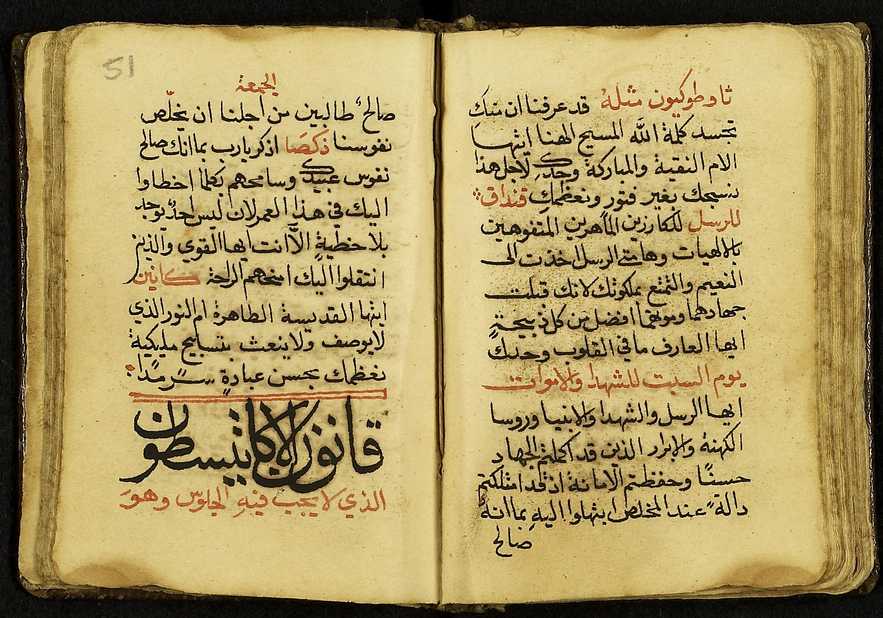 ثاوطوكيون مثله قد عرفنا ان منك
تجسد كلمة الله المسيح الهنا ايتها
الام النقية والمباركة وحدك لاجل هذا
نسبحك بغير فتور ونعظمك قنداق
للرسل للكارزين الماهرين المتفوهين
بالالهيات وهامتي الرسل اخذت الى
النعيم والتمتع بملكوتك لانك قبلت
جهادهما وموتهما افضل من كل ذبيحة
ايها العارف ما في القلوب وحدك
يوم السبت للشهدا والاموات
ايها الرسل والشهدا والانبيا وروسا
الكهنة والابرار الذين قد اكملتم الجهاد
حسنًا وحفظتم الامانة اذ قد امتلكتم
دالةً عند المخلص ابتهلوا اليه بما انهُ
صالح
51
الجمعة
صالحٌ طالبين من اجلنا ان يخلّص
نفوسنا ذكصا اذكر يا رب بما انك صالح
نفوس عبيدك وسامحهم بكلما اخطاوا
اليك في هذا العمر لان ليس احدٌ يوجد
بلا خطيةٍ الّا انت ايها القوي والذين
انتقلوا اليك امنحهم الراحة كانين
ايتها القديسة الطاهرة ام النور الذي
لا يوصف ولا ينعث بتسابيح مليكية
نعظمك بحسن عبادةٍ سرمدًا
قانون الاكاثيسطون
الذي لا يجب فيه الجلوس وهو